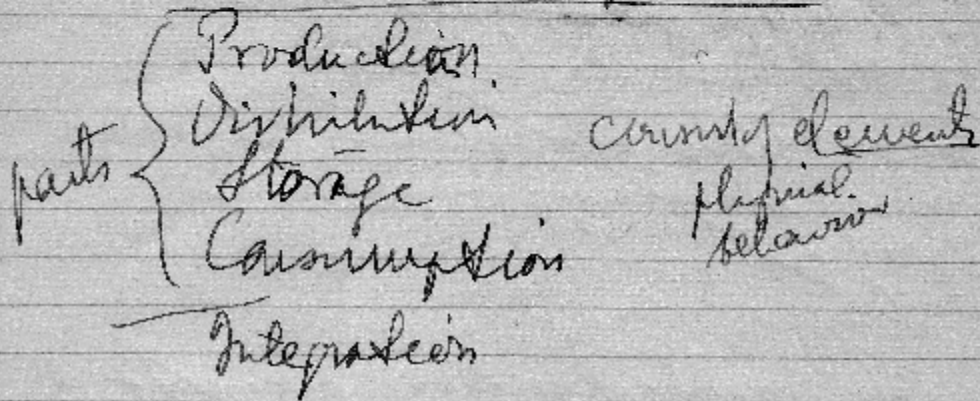 Production
Distribution
parts
Storage
Consumption
Integration
consist of elements
physical
behavior